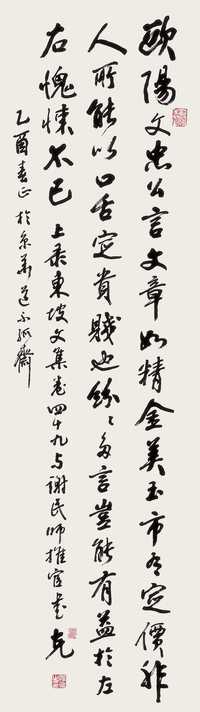 歐陽文忠公言文章如精金美玉市有定價非
人所能以口舌定貴賤也紛〻多言豈能有益於左
右愧悚不已 上录東坡文集卷四十九与谢民師推官书 克
乙酉春正於京華道不孤齋